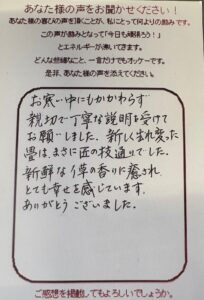 あなた様の声をお聞かせください！
あなた様の喜びの声を頂くことが、私にとって何よりの励みです。
この声が励みとなって「今日も頑張ろう！」
とエネルギーが沸いてきます。
どんな些細なこと、一言だけでもオッケーです。
是非、あなた様の声を添えてください。
お寒い中にもかかわらず
親切で丁寧な説明を受けて
お願いしました。新しく生れ変った
畳は、まさに匠の技通りでした。
新鮮ない草の香りに癒され
とても幸せを感じています。
ありがとうございました。
ご感想を掲載してもよろしいでしょうか。